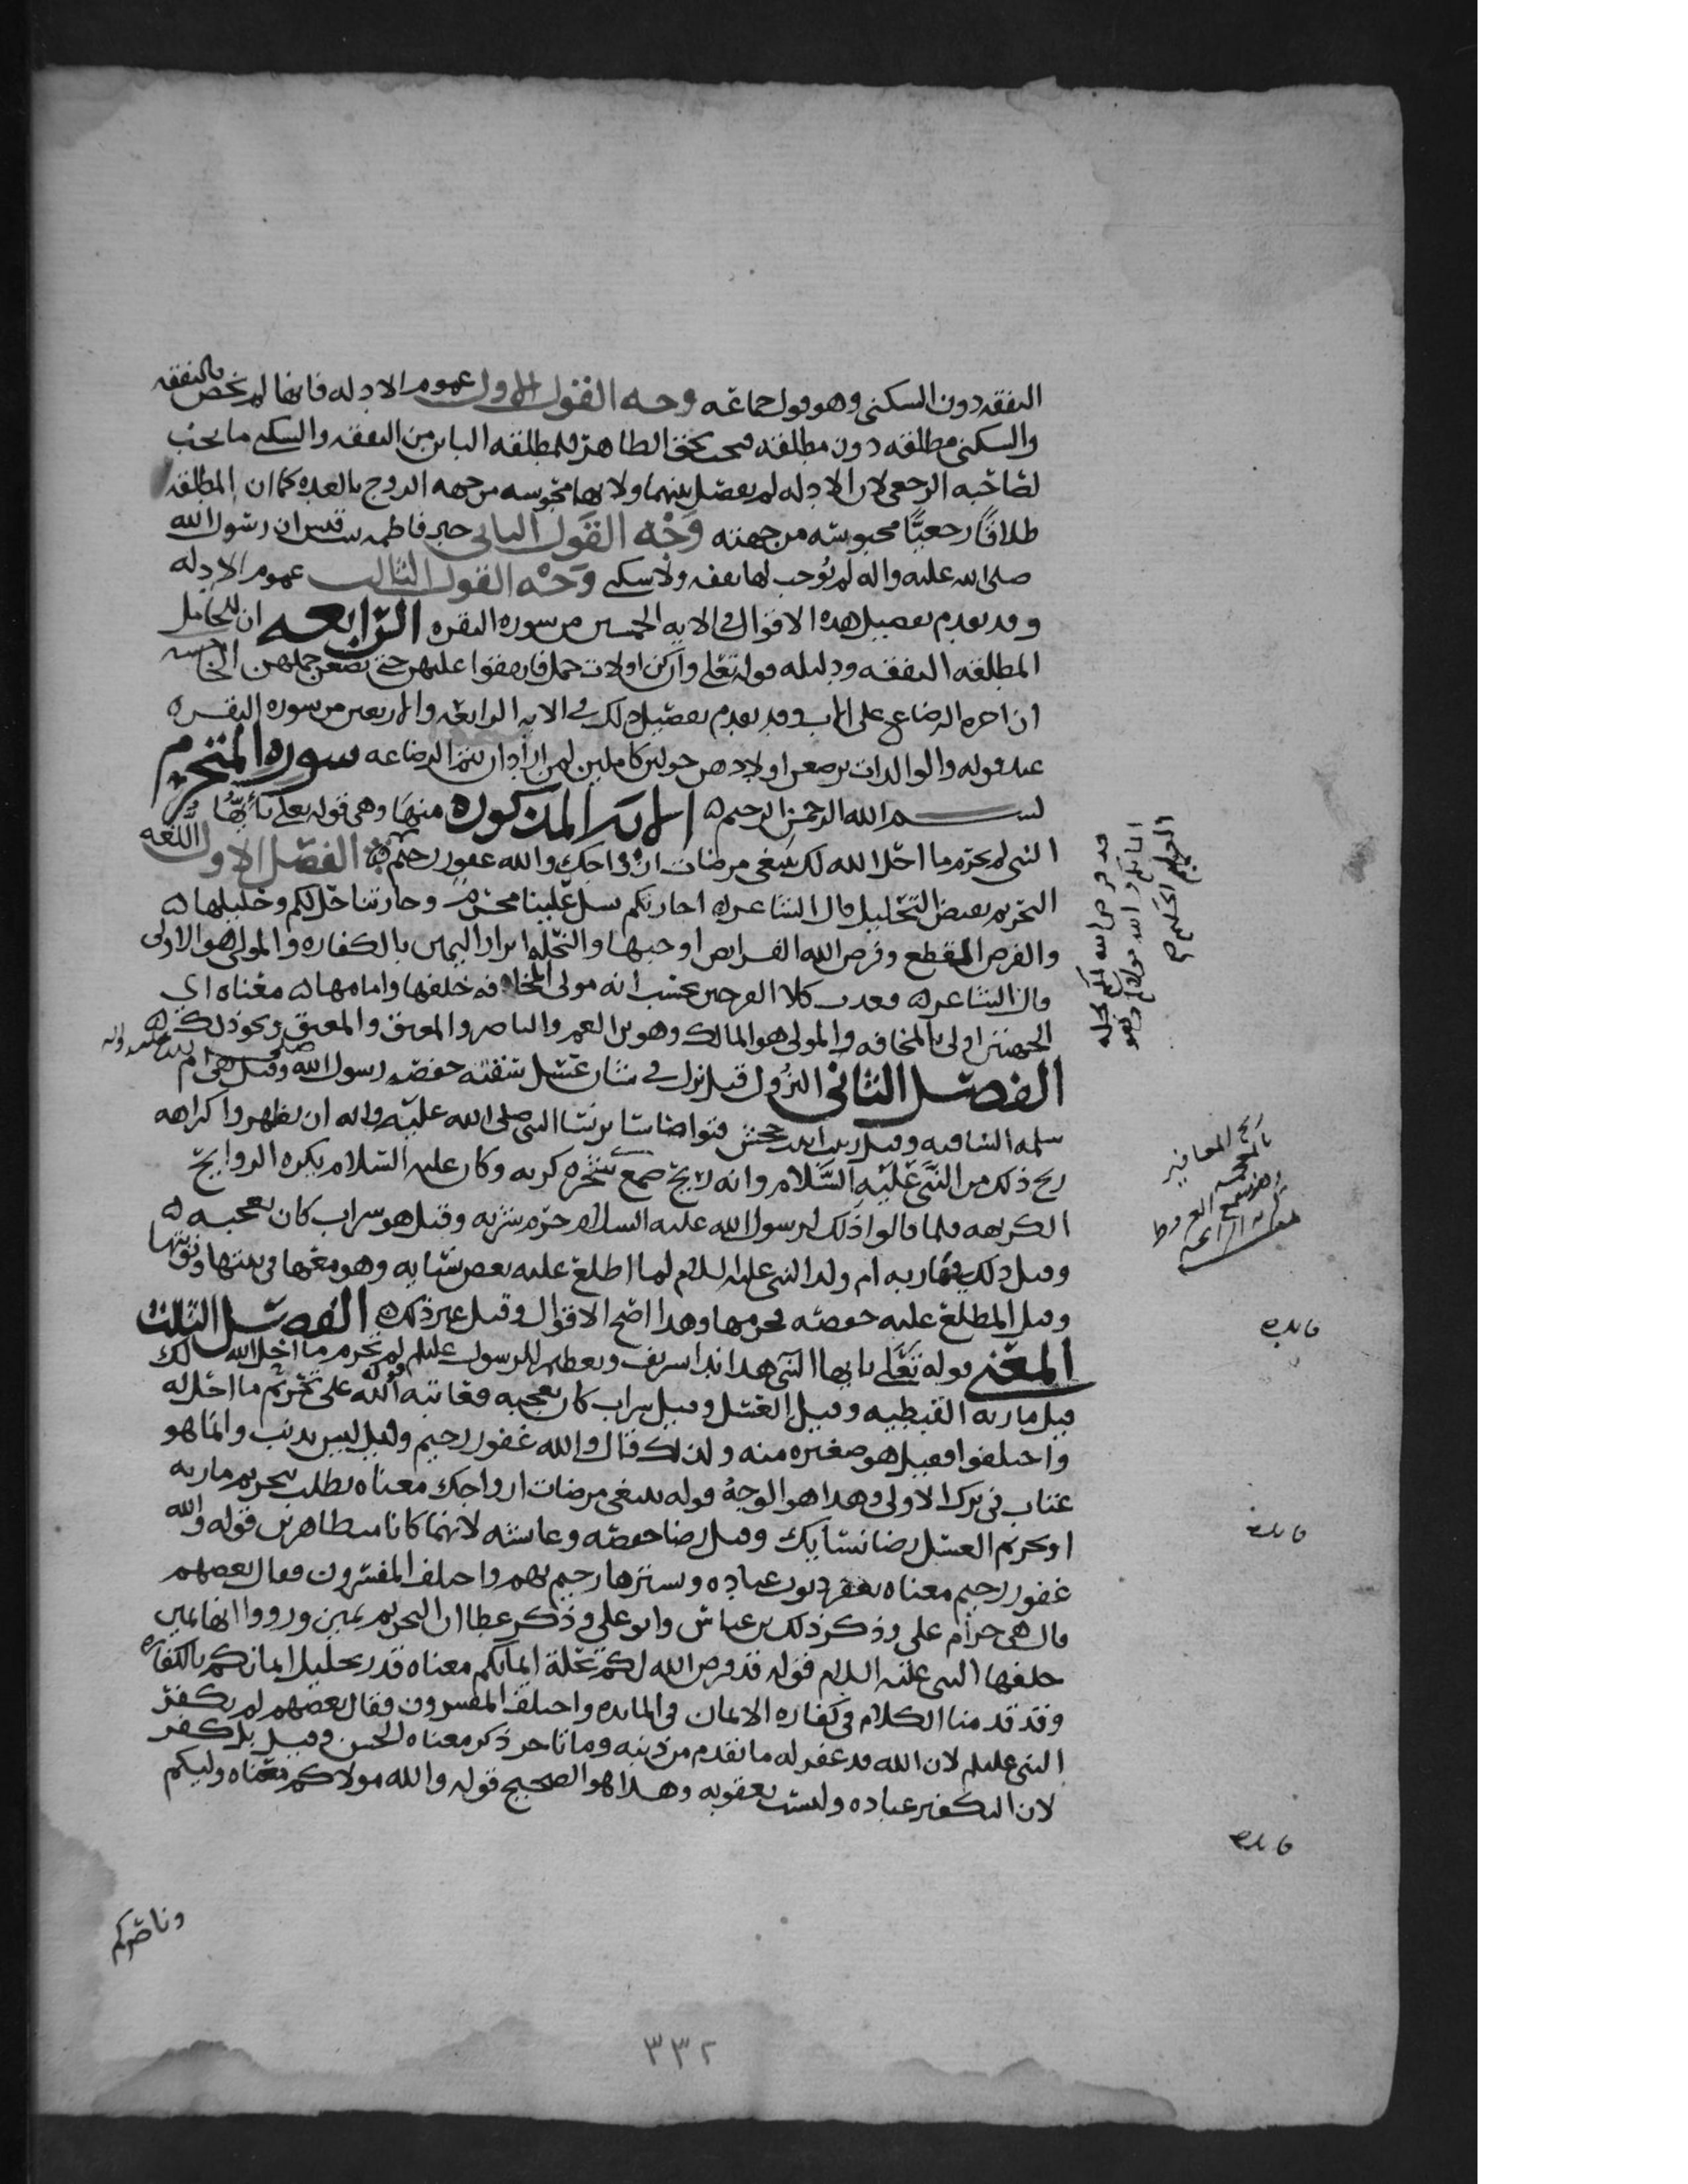 النفقه دون السكنى وهو قول جماعه وجه القول الاول عموم الادله فانها لم تخص بالنفقه
والسكنى مطلقه دون مطلقه فيجب بحق الظاهر للمطلقه البائن من النفقه والسكنى ما يجب
لصاحبه الرجعي لان الادله لم تفصل بينهما ولانها محبوسه من جهه الزوج بالعده كما ان المطلقه
طلاقًا رجعيًّا محبوسه من جهته وَجْه القَول الثاني خبر فاطمه بنت قيس ان رسول الله
صلى الله عليه واله لم يوجب لها نفقه ولا سكنى وَجْه القول الثالث عموم الادله
وقد تقدم تفصيل هذه الاقوال في الايه الخمسين من سوره البقره الرابعه ان للحامل
المطلقه النفقه ودليله قوله تعلى وان كن اولات حمل فانفقوا عليهن حتى يضعن حملهن الخامسه
ان اجره الرضاع على الاب وقد تقدم تفصيل ذلك في الايه الرابعه والاربعين من سوره البقره
عند قوله والوالدات يرضعن اولادهن حولين كاملين لمن اراد ان يتم الرضاعه سوره المتحرم
بسم الله الرحمن الرحيم الايه المذكوره منها وهي قوله تعلى يا ايُّها
النبي لم تحرم ما احل الله لك تبتغي مرضات ازواجك والله غفور رحيم الفصل الاول اللغه
التحريم نقيض التحليل قال الشاعر اجارتكم بسل علينا محرم وجارتنا حل لكم وحليلها
والفرض القطع وفرض الله الفرايض اوجبها والتحله ابرار اليمين بالكفاره والمولى هو الاولى
قال الشاعر فغدت كلا الفرجين تحسب انه مولى المخافه خلفها وامامها معناه اي
الجهتين اولى بالمخافه والمولى هو المالك وهو بن العم والناصر والمعتِق والمعتَق ونحو ذلك
الفصل الثاني النزول قيل نزل في شان عسل سقته حفصه رسول الله صلى الله عليه واله وقيل هي ام
سلمه الساقيه وقيل زينب ابنت جحش فتواصا نسا النبي صلى الله عليه واله ان يظهروا كراهه
ريح ذلك من النَّبي عَليْهِ السَّلام وانه ريح صمغ شجره كريه وكان عليه السلام يكره الروايح
الكريهه فلما قالوا ذلك لرسول الله عليه السلام حرم شربه وقيل هو شراب كان يعجبه
وقيل ذلك في ماريه ام ولد النبي عليه السلام لما اطلع عليه بعض نسايه وهو معها في بيتها ونوبتها
وقيل المطلع عليه حفصه فحرمها وهذا اصح الاقوال وقيل غير ذلك الفصل الثالث
المعنى قوله تعلى يا ايها النبي هذا ندا تشريف وتعظيم للرسول عليلم قوله لم تحرم ما احل الله لك
قيل ماريه القبطيه وقيل العسل وقيل شراب كان يعجبه فعاتبه الله على تحريم ما احل له
واختلفوا فقيل هو صغيره منه ولذلك قال والله غفور رحيم وقيل ليس بذنب وانما هو
عتاب في ترك الاولى وهذا هو الوجه قوله تبتغي مرضات ازواجك معناه تطلب بتحريم ماريه
او تحريم العسل رضا نسايك وقيل رضا حفصه وعايشه لانهما كانا متظاهرتين قوله والله
غفور رحيم معناه يغفر ذنوب عباده ويسترها رحيم بهم واختلف المفسرون فقال بعضهم
قال هي حرام علي وذكر ذلك بن عباس وابو علي وذكر عطا ان التحريم يمين ورووا انها يمين
حلفها النبي عليه السلام قوله قد فرض الله لكم تحلة ايمانكم معناه قدر تحليل ايمانكم بالكفاره
وقد قدمنا الكلام في كفاره الايمان في المايده واختلف المفسرون فقال بعضهم لم يكفر
النبي عليلم لان الله قد غفر له ما تقدم من ذنبه وما تاخر ذكر معناه الحسن وقيل بل كفر
لان التكفير عباده وليست بعقوبه وهذا هو الصحيح قوله والله مولاكم معناه وليكم
وناصركم
قد فرض الله لكم تحله
ايمانكم والله مولاكم وهو
العليم الحكيم صح
ريح المغافير
بالمعجمه
وهو صمغ العرفط
كريه الرائحه
فايده
فايده
فايده
٣٣٢